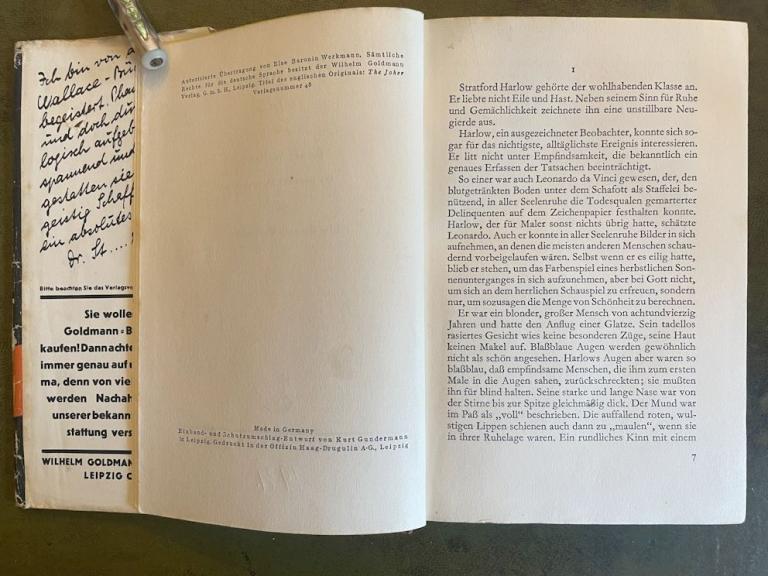 Ich bin von d
Wallace-Bü
begeistert. Phan
und doch du
logisch aufgeb
spannend und
gestatten sie
geistig Schaff
ein absolutes
Dr. St....
Bitte beachten Sie das Verlagsve
Sie wolle
Goldmann-B
kaufen! Dann achte
immer genau auf u
ma, denn von vie
werden Nachah
unserer bekann
stattung vers
WILHELM GOLDMAN
LEIPZIG C
Autorisierte Übertragung von Else Baronin Werkmann. Sämtliche
Rechte für die deutsche Sprache besitzt der Wilhelm Goldmann
Verlag, G. m. b. H., Leipzig. Titel des englischen Originals: The Joker
Verlagsnummer 48
Made in Germany
Einband- und Schutzumschlag-Entwurf von Kurt Gundermann
in Leipzig. Gedruckt in der Offizin Haag-Drugulin A-G., Leipzig
1
Stratford Harlow gehörte der wohlhabenden Klasse an.
Er liebte nicht Eile und Hast. Neben seinem Sinn für Ruhe
und Gemächlichkeit zeichnete ihn eine unstillbare Neu-
gierde aus.
Harlow, ein ausgezeichneter Beobachter, konnte sich so-
gar für das nichtigste, alltäglichste Ereignis interessieren.
Er litt nicht unter Empfindsamkeit, die bekanntlich ein
genaues Erfassen der Tatsachen beeinträchtigt.
So einer war auch Leonardo da Vinci gewesen, der, den
blutgetränkten Boden unter dem Schafott als Staffelei be-
nützend, in aller Seelenruhe die Todesqualen gemarterter
Delinquenten auf dem Zeichenpapier festhalten konnte.
Harlow, der für Maler sonst nichts übrig hatte, schätzte
Leonardo. Auch er konnte in aller Seelenruhe Bilder in sich
aufnehmen, an denen die meisten anderen Menschen schau-
dernd vorbeigelaufen wären. Selbst wenn er es eilig hatte,
blieb er stehen, um das Farbenspiel eines herbstlichen Son-
nenunterganges in sich aufzunehmen, aber bei Gott nicht,
um sich an dem herrlichen Schauspiel zu erfreuen, sondern
nur, um sozusagen die Menge von Schönheit zu berechnen.
Er war ein blonder, großer Mensch von achtundvierzig
Jahren und hatte den Anflug einer Glatze. Sein tadellos
rasiertes Gesicht wies keine besonderen Züge, seine Haut
keinen Makel auf. Blaßblaue Augen werden gewöhnlich
nicht als schön angesehen. Harlows Augen aber waren so
blaßblau, daß empfindsame Menschen, die ihm zum ersten
Male in die Augen sahen, zurückschreckten; sie mußten
ihn für blind halten. Seine starke und lange Nase war von
der Stirne bis zur Spitze gleichmäßig dick. Der Mund war
im Paß als „voll“ beschrieben. Die auffallend roten, wul-
stigen Lippen schienen auch dann zu „maulen“, wenn sie
in ihrer Ruhelage waren. Ein rundliches Kinn mit einem
7